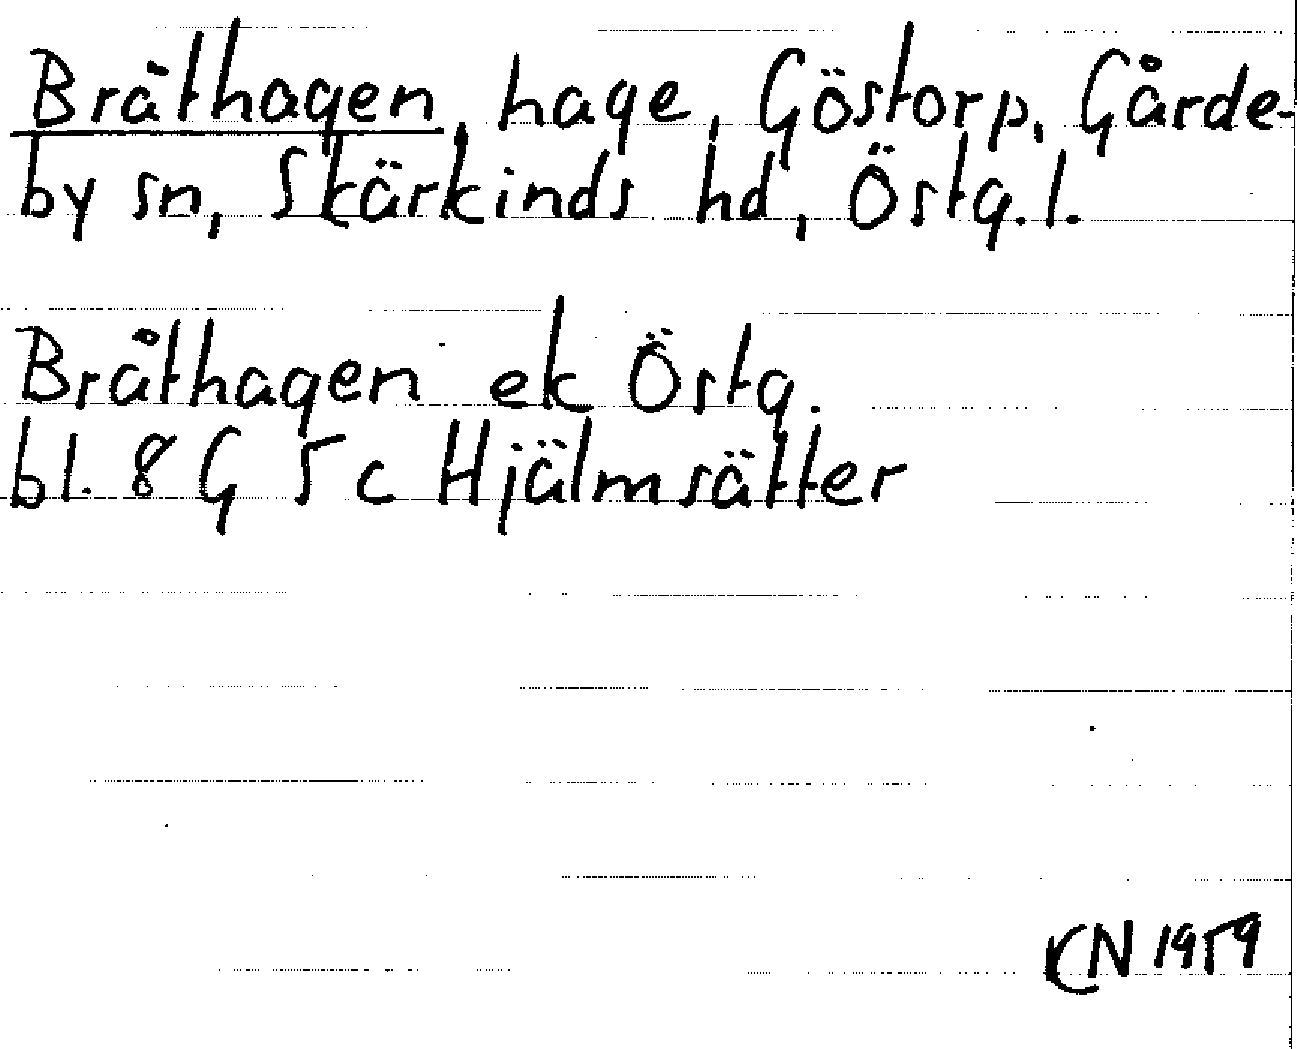 Bråthagen, hage, Göstorp, Gårde-
by sn, Skärkinds hd, Östg.l.
Bråthagen ek Östg.
bl. 8 G 5 c Hjälmsätter
CN 1959